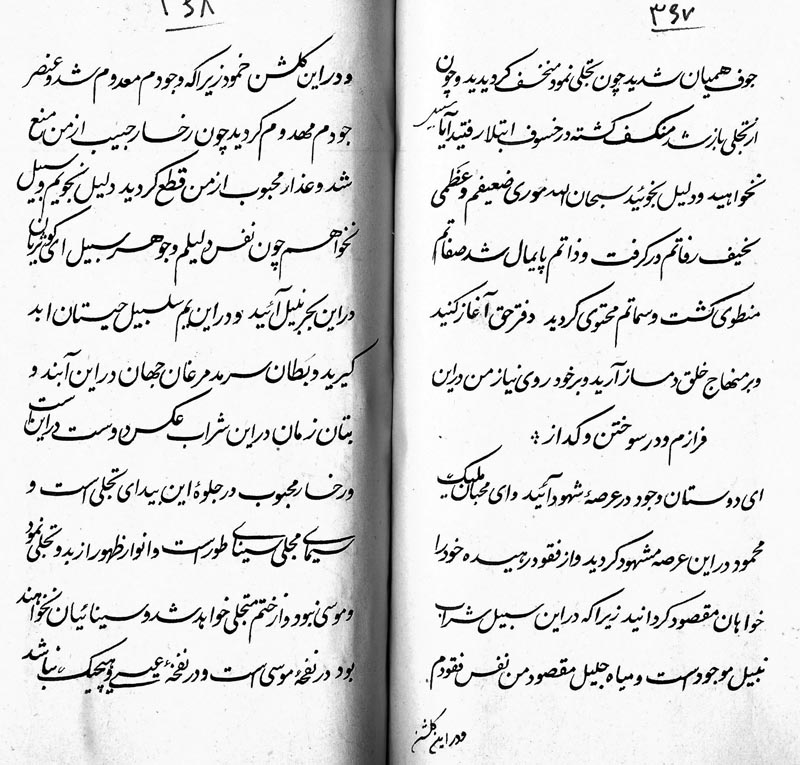 ۳۶۷
جوف همیان شدید چون تجلی نمود منخسف گردیدید و چون
از تجلی باز شد منکسف گشته در خسوف ابتلا رفتید آیا سبیل
نخواهید و دلیل نجوئید سبحان الله موری ضعیفم و عظمی
نحیف رفاتم ور گرفت و ذاتم پایمال شد صفاتم
منطوی گشت و سماتم محتوی گردید دفتر حق آغاز کنید
و بر منهاج خلق دمساز آرید و بر خود روی نیاز من در این
فرازم و در سوختن و گداز
ای دوستان وجود در عرصهٔ شهود آئید و ای محبان ملیک
محمود در این عرصه مشهود گردید و از فقود رهیده خود را
خواهان مقصود گردانید زیرا که در این سبیل شراب
نبیل موجود است و میاه جلیل مقصود من نفس فقودم
و در این گلشن
۳۶۸
و در این گلشن خمود زیرا که وجودم معدوم شد و عنصر
جودم مهدوم گردید چون رخسار حبیب از من منع
شد و عذار محبوب از من قطع گردید دلیل نجویم و سبیل
نخواهم چون نفس دلیلم و جوهر سبیل ای
در این بحر نبیل آئید و در این یم سلسبیل حیتان ابد
گیرید و بطان سرمد مرغان جهان در این آبند و
بتان زمان در این شراب عکس دوست در این است
و رخسار محبوب در جلوهٔ این بیدای تجلی است و
سیمای مجلی سینای طور است و انوار ظهور از بدو تجلی نمود
و موسی نبود و از ختم متجلی خواهد شد و سینائیان نخواهند
بود در نفحهٔ موسی است و در نفخهٔ عیسی و هیچیک نباشد